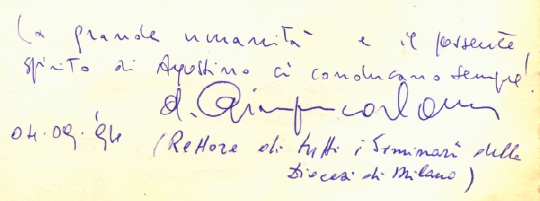 La grande umanità e il possente
spirito di Agostino ci conducano sempre!
d.
04.09.94 (Rettore di tutti i Seminari della
Diocesi di Milano)